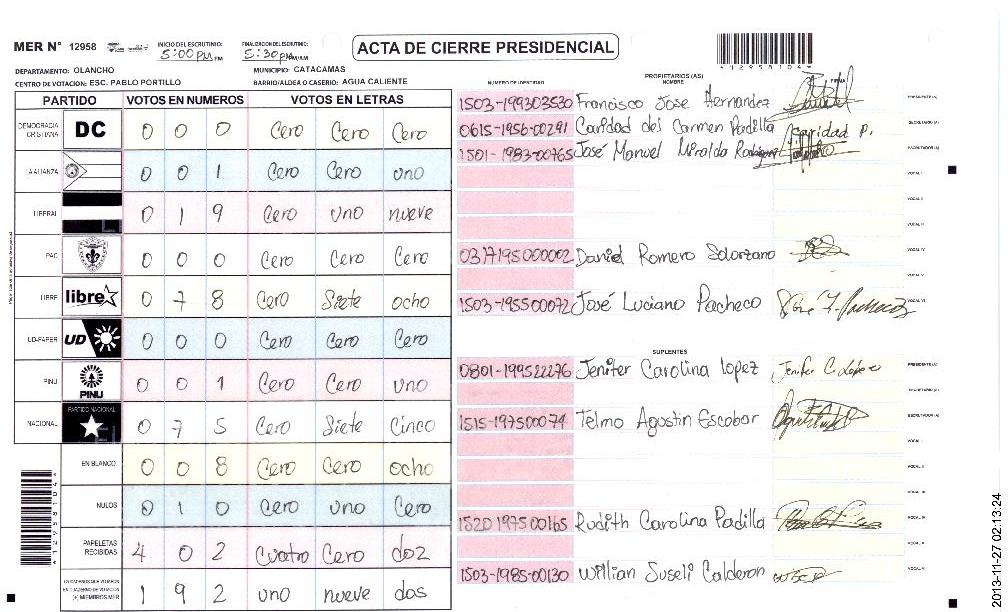 MER N° 12958 INICIO DEL ESCRUTINIO: 5:00 PM PM FINALIZACION DEL ESCRUTINIO: 5:30 PM PM/AM ACTA DE CIERRE PRESIDENCIAL
*12958104*
DEPARTAMENTO: OLANCHO MUNICIPIO: CATACAMAS
CENTRO DE VOTACION: ESC. PABLO PORTILLO BARRIO/ALDEA O CASERIO: AGUA CALIENTE
PARTIDO VOTOS EN NUMEROS VOTOS EN LETRAS
DEMOCRACIA CRISTIANA DC 0 0 0 Cero Cero Cero
LA ALIANZA 0 0 1 Cero Cero uno
LIBERAL L 0 1 9 Cero uno nueve
PAC 0 0 0 Cero Cero Cero
LIBRE libre 0 7 8 Cero Siete ocho
UD-FAPER UD 0 0 0 Cero Cero Cero
PINU PINU 0 0 1 Cero Cero uno
NACIONAL PARTIDO NACIONAL 0 7 5 Cero Siete Cinco
EN BLANCO 0 0 8 Cero Cero ocho
NULOS 0 1 0 Cero uno Cero
PAPELETAS RECIBIDAS 4 0 2 Cuatro Cero doz
1 9 2 uno nueve dos
NUMERO DE IDENTIDAD PROPIETARIOS (AS) NOMBRE FIRMA
1503-199303530 Francisco Jose Hernandez PRESIDENTE (A)
0615-1956-00291 Caridad del Carmen Padilla Caridad P. SECRETARIO (A)
1501-1983-00765 José Manuel Miralda Rodriguez ESCRUTADOR (A)
VOCAL I
VOCAL II
VOCAL III
0317195000002 Daniel Romero Solorzano VOCAL IV
VOCAL V
1503-195500072 José Luciano Pacheco José L. Pacheco VOCAL VI
SUPLENTES
0801-199522276 Jenifer Carolina Lopez Jenifer C. López PRESIDENTE (A)
SECRETARIO (A)
1515-197500074 Telmo Agustin Escobar ESCRUTADOR (A)
VOCAL I
VOCAL II
VOCAL III
1520197500165 Rudith Carolina Padilla VOCAL IV
VOCAL V
1503-1985-00130 Willian Suseli Calderon VOCAL VI
2013-11-27 02:13:24